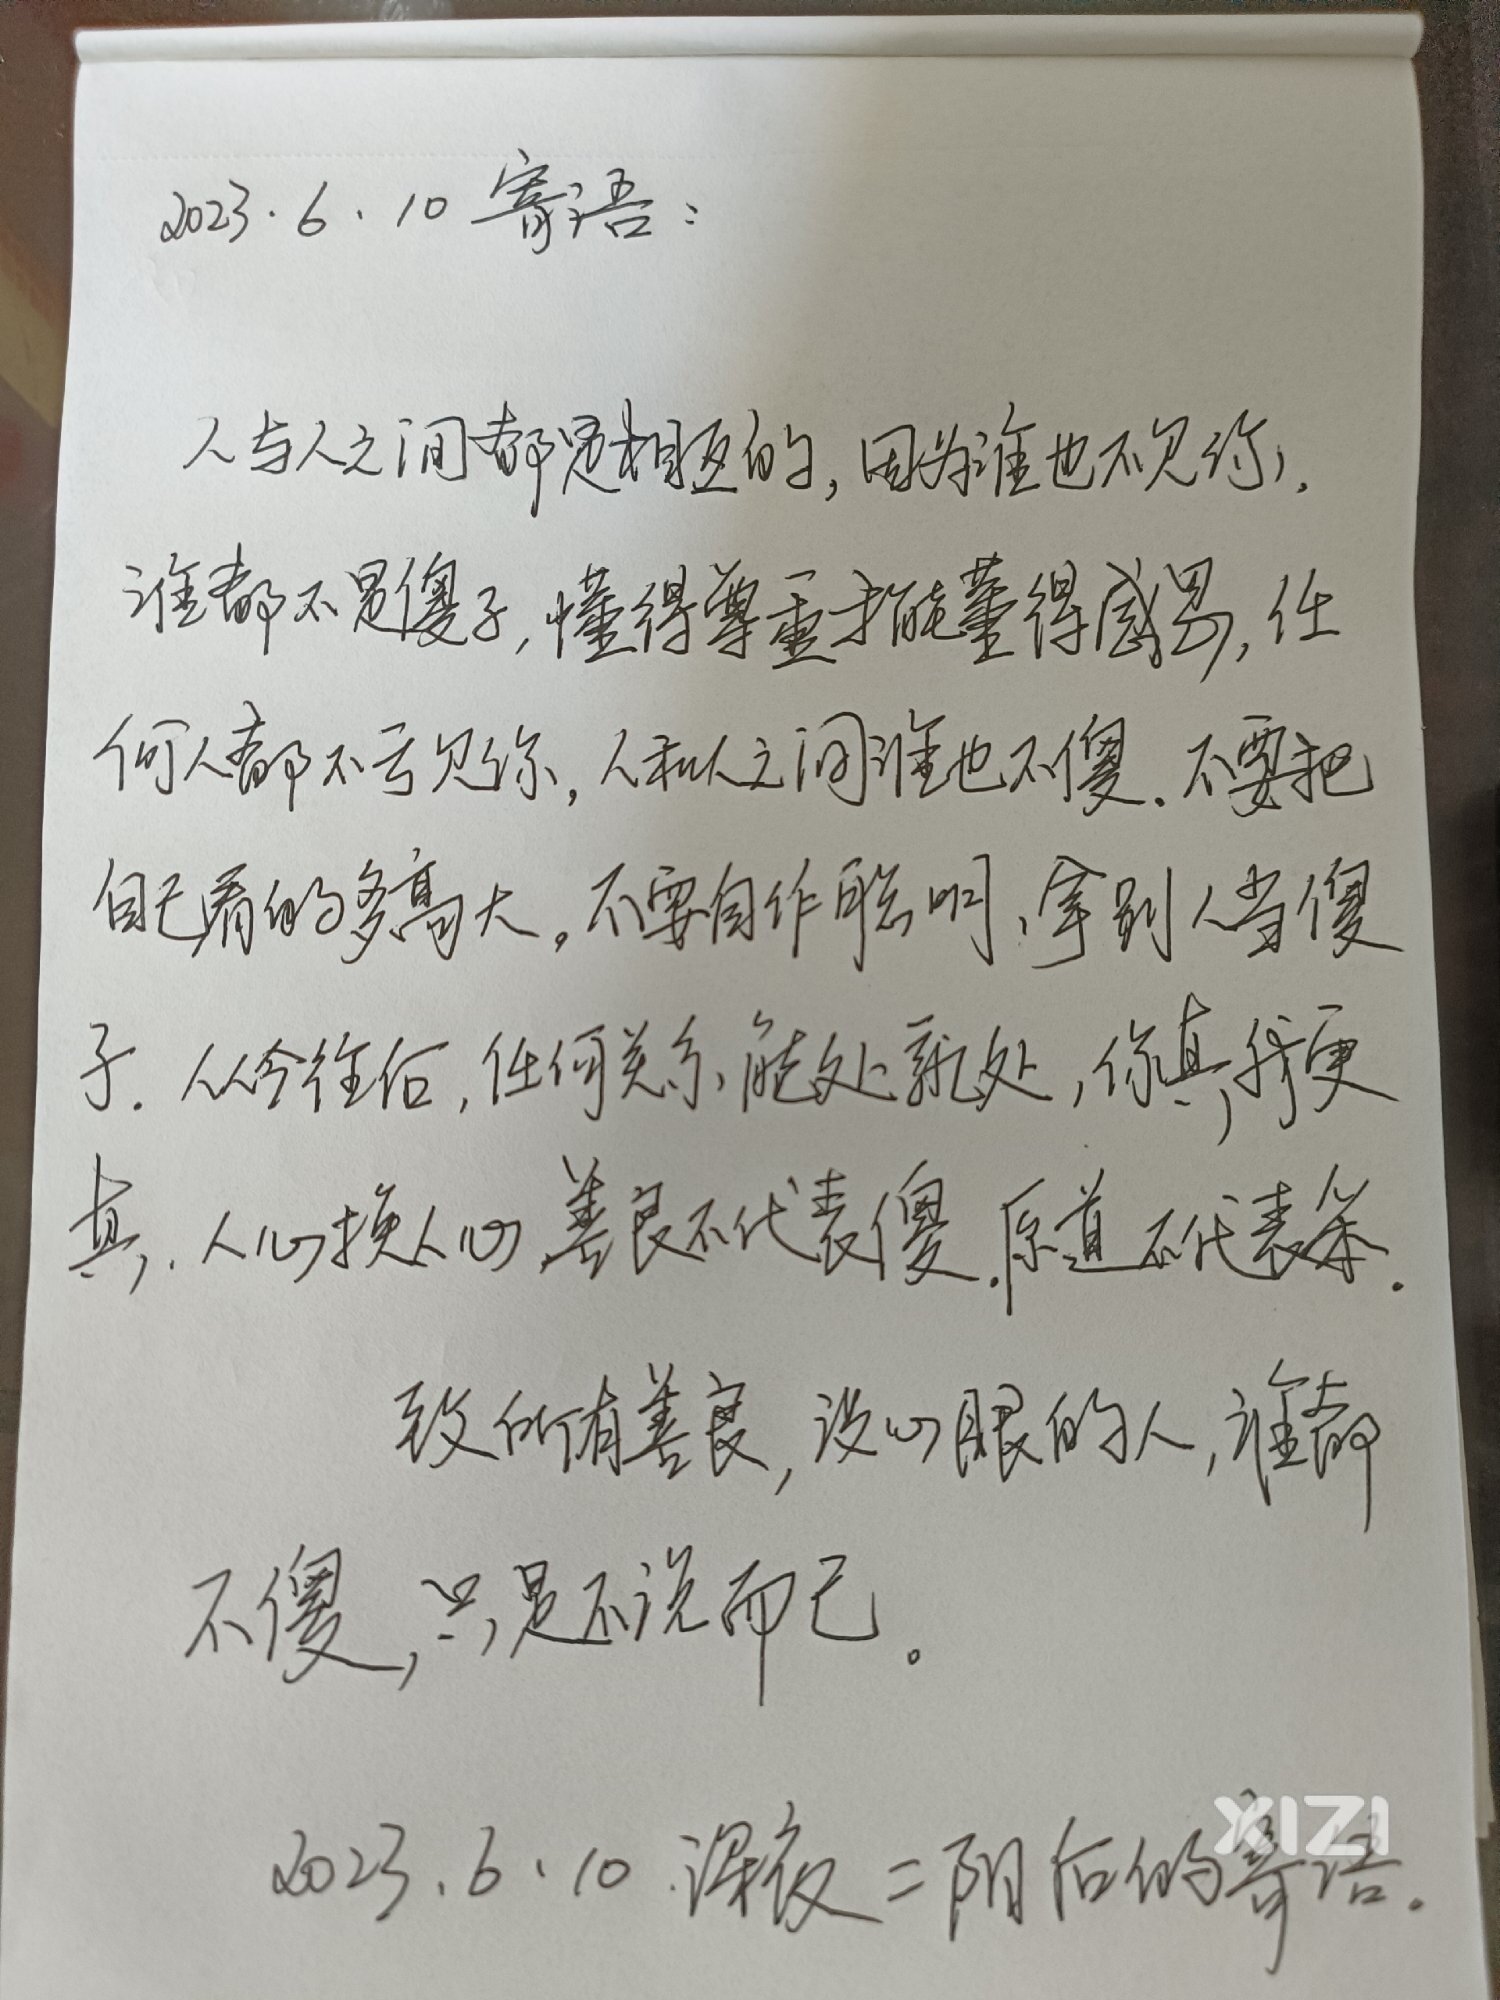 2023.6.10 寄语:
人与人之间都是相互的,因为谁也不见你,
谁都不是傻子,懂得尊重才能董得感恩,任
何人都不亏见你,人和人之间谁也不傻.不要把
自己看的多高大。不要自作聪明、拿别人当傻
子.从今往后,任何关系,能处就处,你真,我更
真.人心换人心,善良不代表傻.厚道不代表笨.
致所有善良,没心眼的人,谁都
不傻,只是不说而已。
XIZI
2023.6.10.深夜二阴后的寄语.